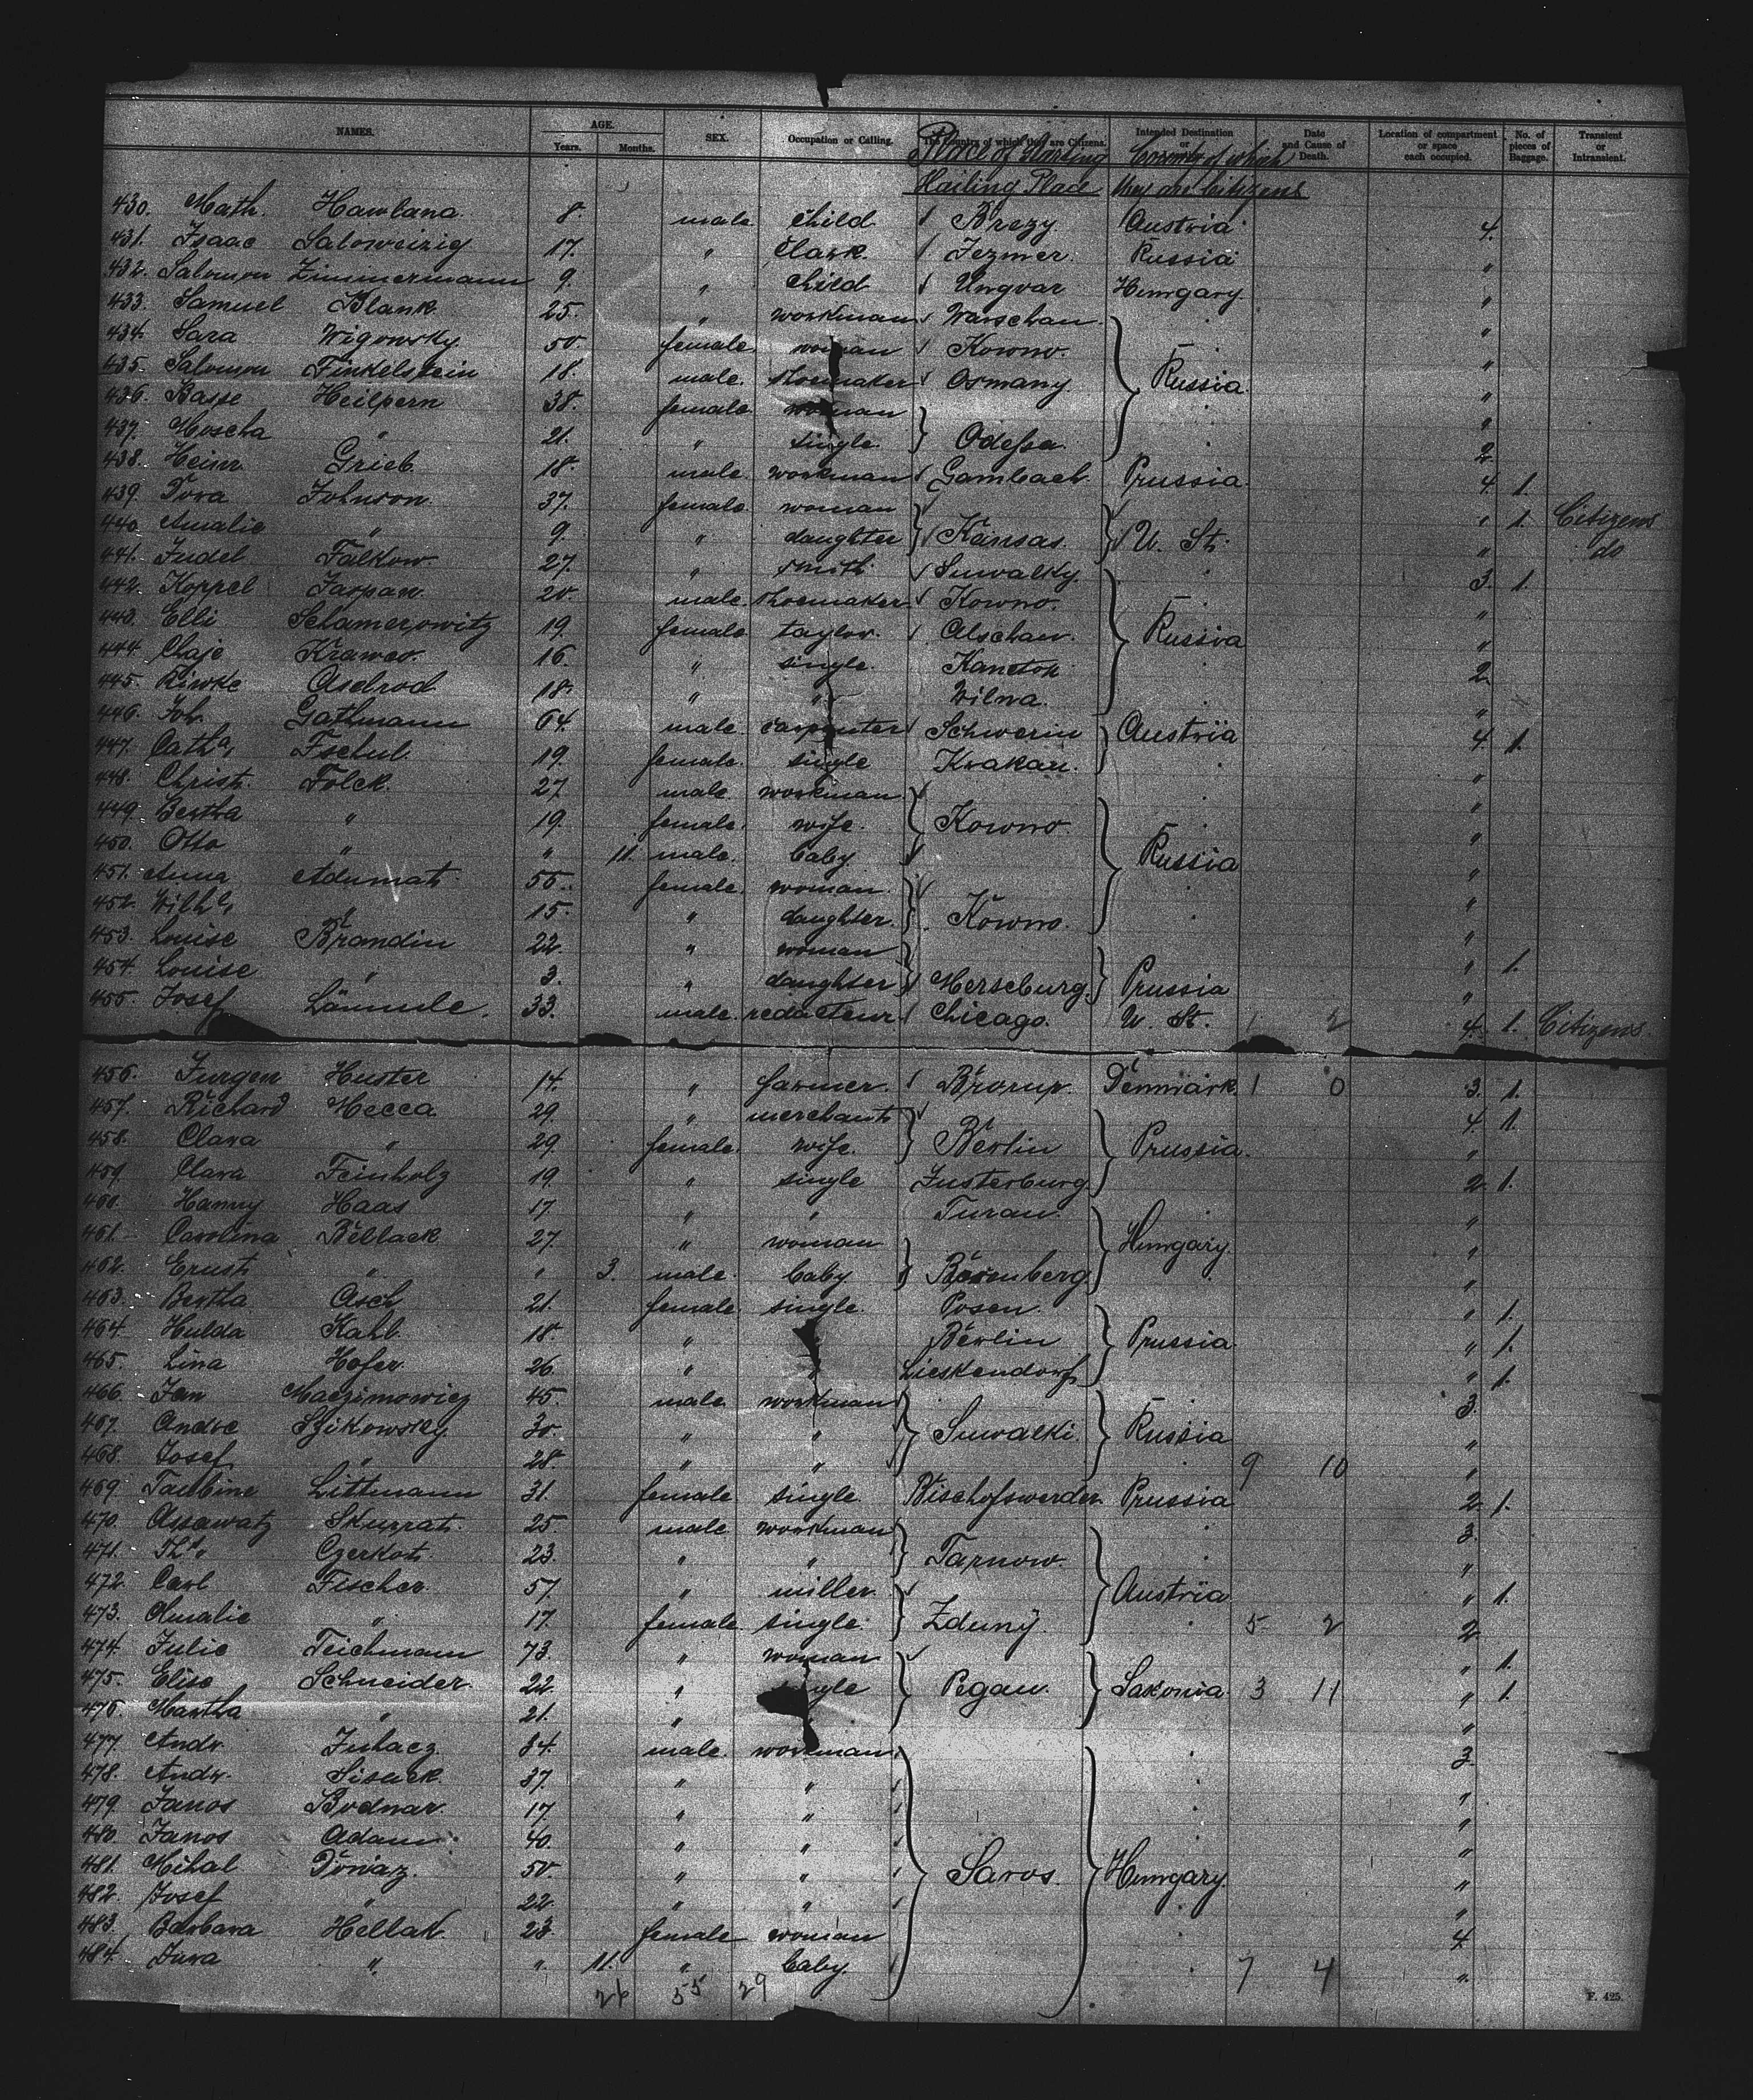 NAMES. AGE. Years. Months. SEX. Occupation or Calling. The Country of which they are Citizens. Intended Destination or Date and Cause of Death. Location of compartment or space each occupied. No. of pieces of Baggage. Transient or Intransient.
Place of Starting Country of which
Hailing Place they are Citizens
430. Math. Hawlana. 8. male child Brezy Austria 4.
431. Isaac Saloweizig 17. " Clark. Jezmer. Russia "
432. Salomon Zimmermann 9. " child Ungvar Hungary "
433. Samuel Blank 25. " workman Warschau. "
434. Sara Wigowsky. 50. female woman Kowno. "
435. Salomon Finkelstein 18. male. shoemaker Osmany Russia. "
436. Basse Heilpern 38. female. woman "
437. Moscha " 21. " single. Odessa 2.
438. Heinr. Grieb. 18. male. workman Gambach Prussia. 4. 1.
439. Dora Johnson 37. female woman " 1. Citizens
440. Amalie " 9. " daughter Kansas. U. St. " do
441. Judel Falkow 27. " smith Suwalky. 3. 1.
442. Koppel Jaspan 20. male. shoemaker Kowno. "
443. Elli Schamerowitz 19. female taylor. Olschan. Russia "
444. Chaje Krawco. 16. " single. 2.
445. Riwke Aselrod 18. " " Wilna. "
446. Joh. Gathmann 64. male carpenter Schwerin Austria 4. 1.
447. Catha. Tschul. 19. female. single Krakau. "
448. Christ. Folck. 27. male workman "
449. Bertha " 19. female. wife. Kowno "
450. Otto " " 11. male. baby Russia "
451. Anna Adumat. 55. female. woman. "
452. Wilhe. " 15. " daughter. Kowno. "
453. Louise Brandin 22. " woman " 1.
454. Louise " 3. " daughter Merseburg. Prussia "
455. Josef Lämmle. 33. male redacteur Chicago. U. St. 1 2 4. 1. Citizens
456. Jurgen Huster 14. " farmer. Brorup. Denmark. 1 0 3. 1.
457. Richard Mecca 29. " merchant 4. 1.
458. Clara " 29. female. wife. Berlin Prussia. "
459. Clara Feinholz 19. " single Insterburg. 2. 1.
460. Hanny Haas 17. " " Turan. "
461. Carolina Bellack 27. " woman Hungary. "
462. Ernst " " 3. male. baby Rosenberg. "
463. Bertha Asch 21. female. single. Posen. " 1.
464. Hulda Kahl 18. " Berlin Prussia " 1.
465. Lina Hofer. 26. " Lieskendorf " 1.
466. Jan Maczimowicz 45. male workman 3.
467. Andre Szikowsky 30. " " Suwalki. Russia "
468. Josef " 28. " " 9 10 "
469. Taubine Littmann 31. female single. Bischofswerder. Prussia 2. 1.
470. Skurrat. 25. male workman 3.
471. Czerkot. 23. " " Tarnow. "
472. Carl Fischer. 57. " miller. Austria " 1.
473. Amalie " 17. female. single. Zduny 5 2 2
474. Julie Teichmann 73. " woman " 1.
475. Elise Schneider. 22. " single Pegau. Saxonia. 3 11 " 1.
476. Martha " 21. " "
477. Andr. Juhacz. 34. male. workman 3.
478. Andr. Sisack. 37. " " "
479. Janos Bodnar. 17. " " "
480. Janos Adam. 40. " " "
481. Mihal Donaz. 50. " " Saros. Hungary. "
482. Josef " 22. " " "
483. Barbara Hellak 23. female woman 4.
484. " " 11. " baby. 7 4 "
26 55 29
F. 425.